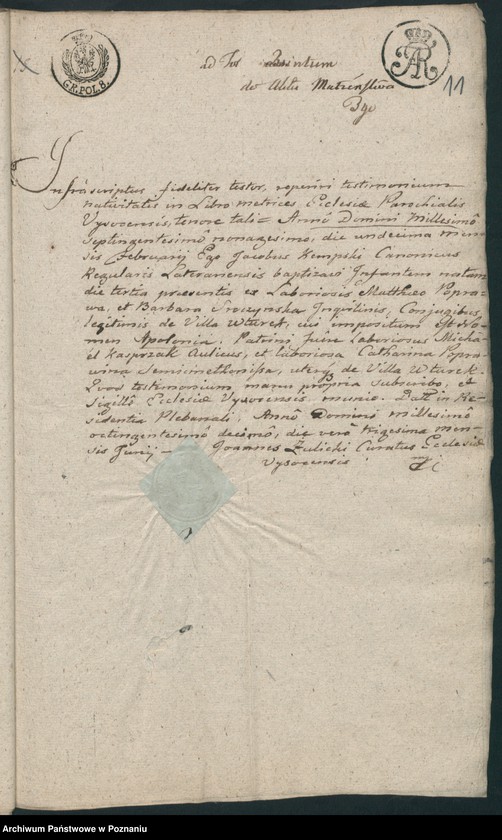 GR.POL 8.
AR
11
do Aktu Matzeństwa
Infrascriptus fideliter testor, reperiri testimonium
nativitatis in Libro metrices Ecclesiæ Parochialis
Vysocensis, tenore tali: Anno Domini Millesimô
Septingentesimô nonagesimo, die undecima men
sis Februarij Ego Jacobus Kempski Canonicus
Regularis Lateranensis baptizavi Infantem natam
die tertia præsentis ex Laboriosis Mattheo Popra-
wa, et Barbara Inquilinis, Conjugibus,
legitimis de Villa Wturek, cui impositum est No-
men Apolonia. Patrini fuere Laboriosus Micha-
el Kasprzak et laboriosa Catharina Popra
wina de Villa Wturek.
Quod testimonium manu propria subscribo, et
Sigillô Ecclesiæ Vysocensis munio. Datt in Re-
sidentia Plebanali. Annô Domini millesimô
octingentesimô decimô, die verô trigesima men-
sis Junij — Joannes Zulicki Curatus Ecclesiæ
Vysocensis
Archiwum Państwowe w Poznaniu